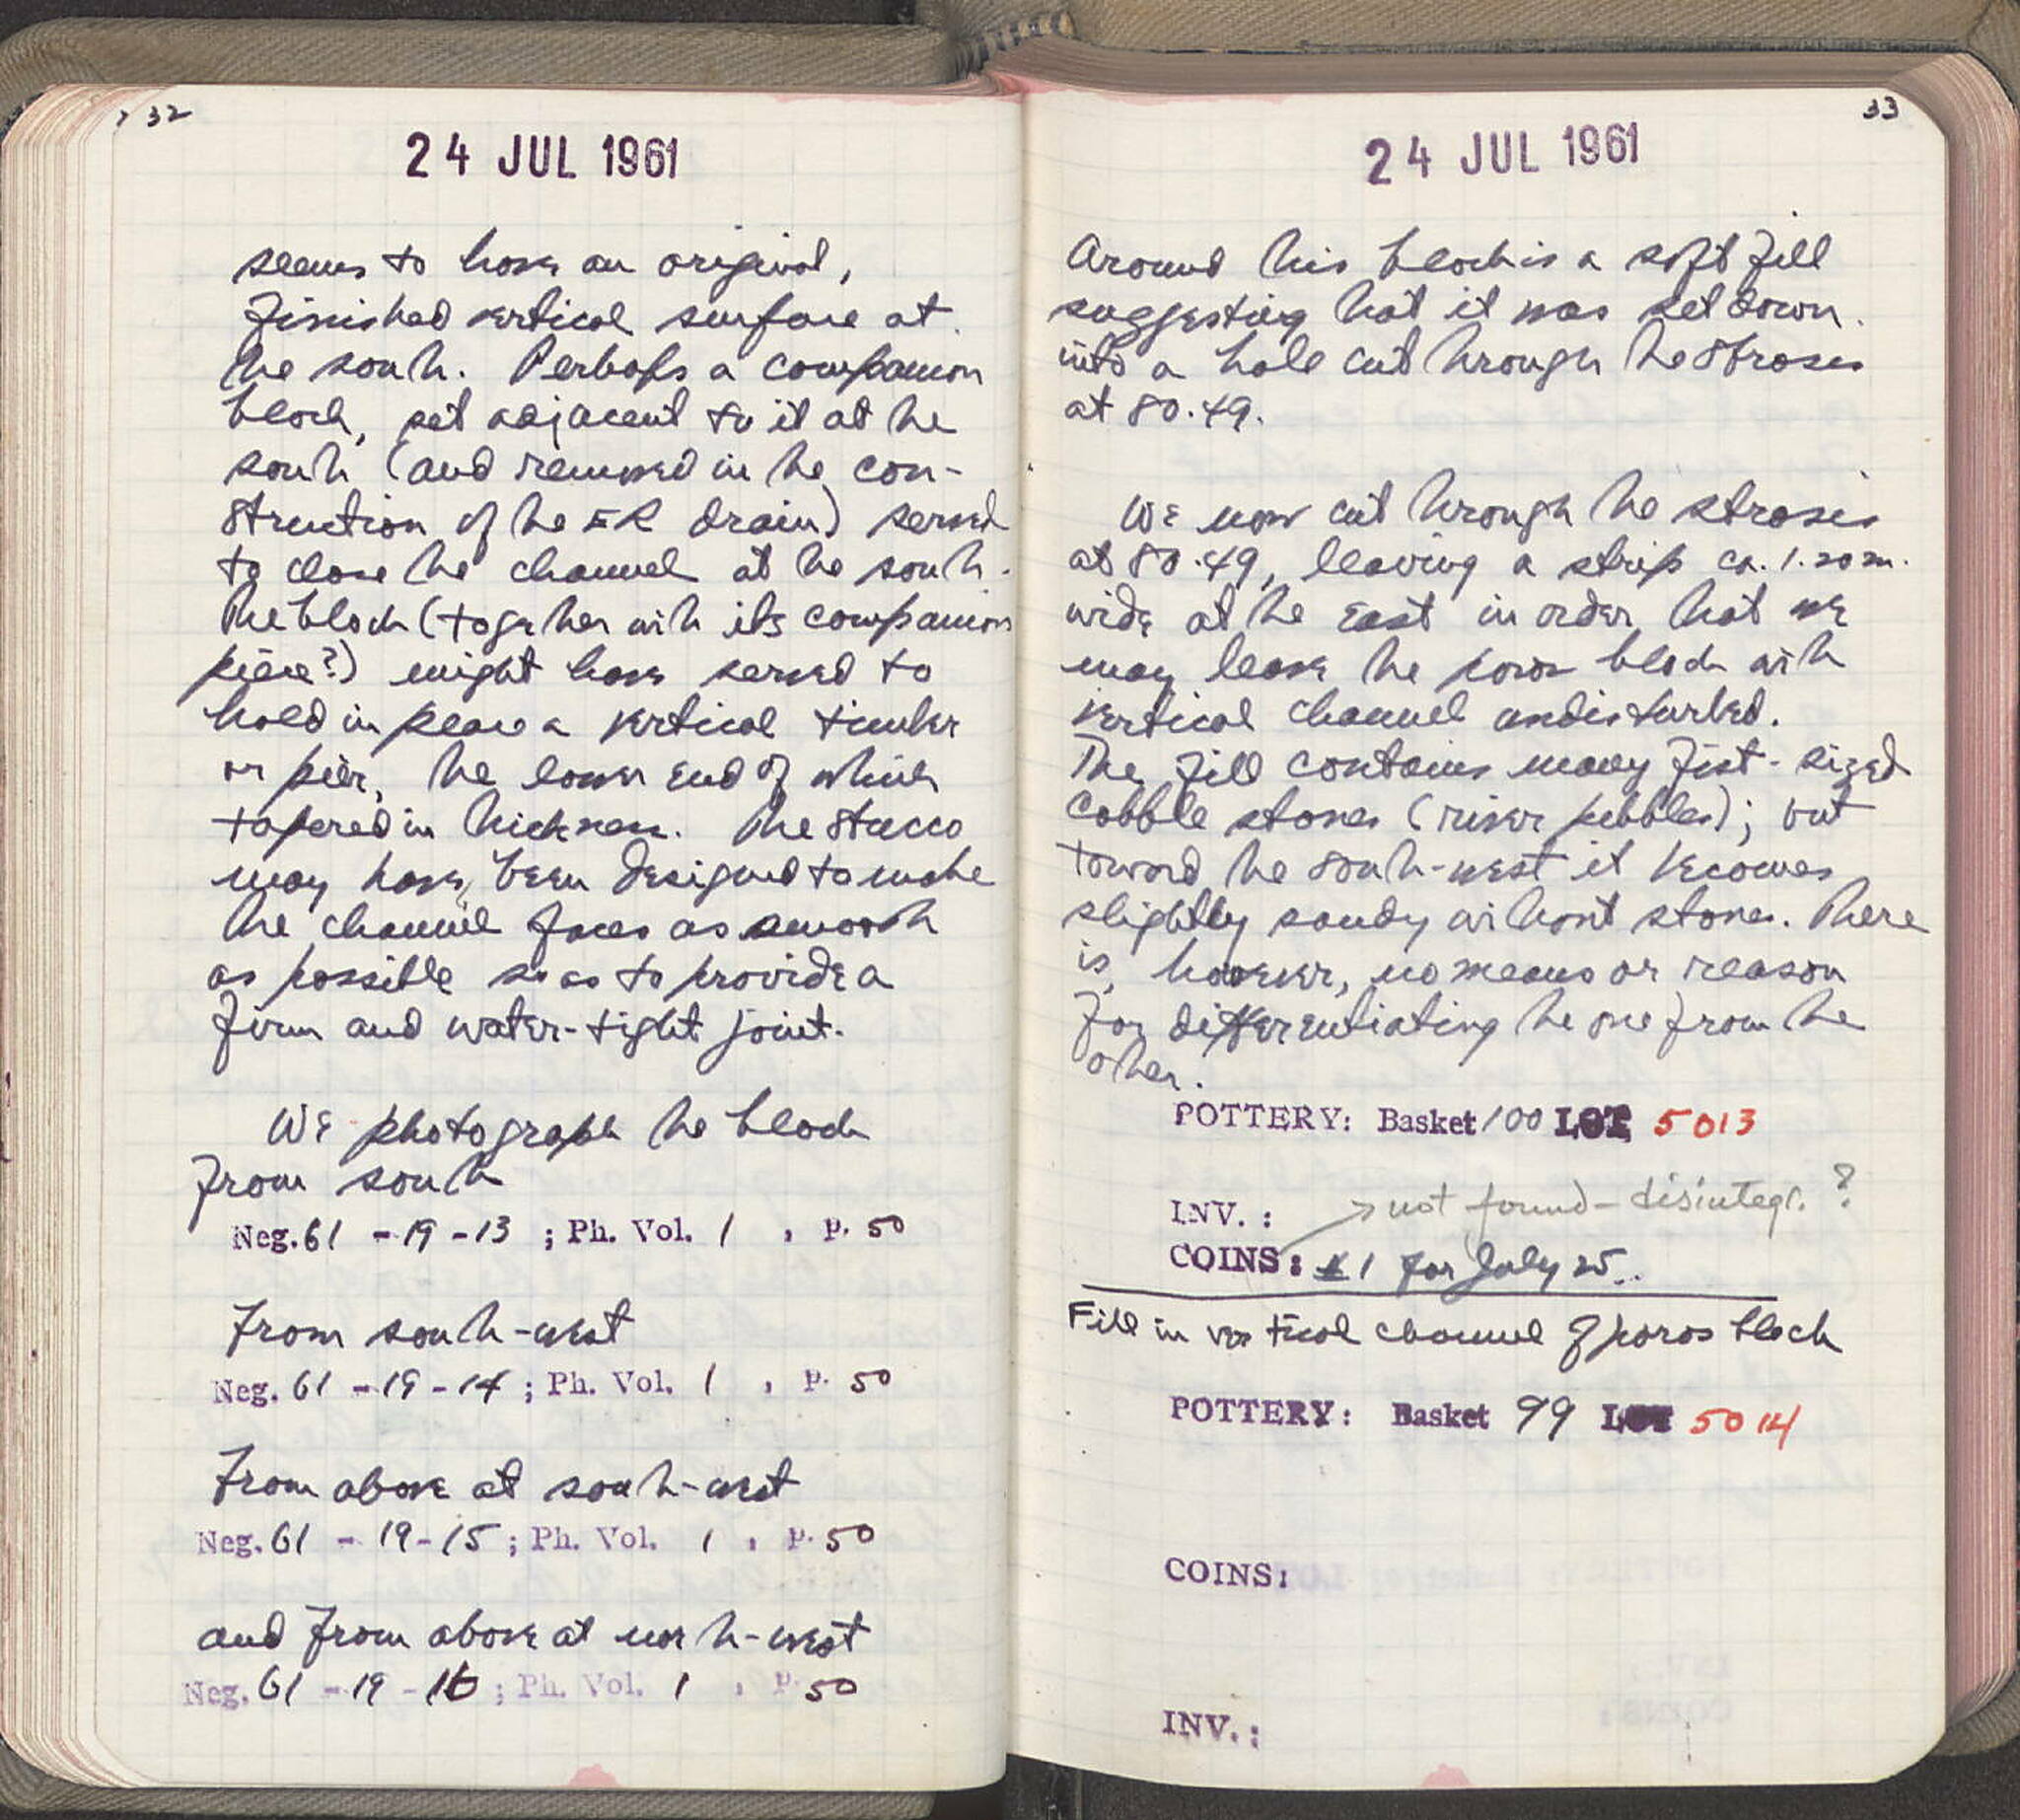 32
24 JUL 1961
seems to have an original,
finished vertical surface at
the south. Perhaps a companion
block, set adjacent to it at the
south (and removed in the con-
struction of the ER drain) served
to close the channel at the south.
The block (together with its companion
piece?) might have served to
hold in place a vertical timber
or pier, the lower end of which
tapered in thickness. The stucco
may have been designed to make
the channel faces as smooth
as possible so as to provide a
firm and water-tight joint.
We photograph the block
from south
Neg. 61 - 19 - 13 ; Ph. Vol. 1 , p. 50
From south-west
Neg. 61 - 19 - 14 ; Ph. Vol. 1 , p. 50
From above at south-west
Neg. 61 - 19 - 15 ; Ph. Vol. 1 , p. 50
and from above at north-west
Neg. 61 - 19 - 16 ; Ph. Vol. 1 , p. 50
33
24 JUL 1961
Around this block is a soft fill
suggesting that it was set down
into a hole cut through the stroses
at 80.49.
We now cut through the strosis
at 80.49, leaving a strip ca. 1.20 m.
wide at the east in order that we
may leave the poros block with
vertical channel undisturbed.
The fill contains many fist-sized
cobble stones (river pebbles); but
toward the south-west it becomes
slightly sandy without stones. There
is, however, no means or reason
for differentiating the one from the
other.
POTTERY: Basket 100 LOT 5013
INV. : → not found - disintegr. ?
COINS: 1 for July 25.
Fill in vertical channel of poros block
POTTERY: Basket 99 LOT 5014
COINS:
INV. :